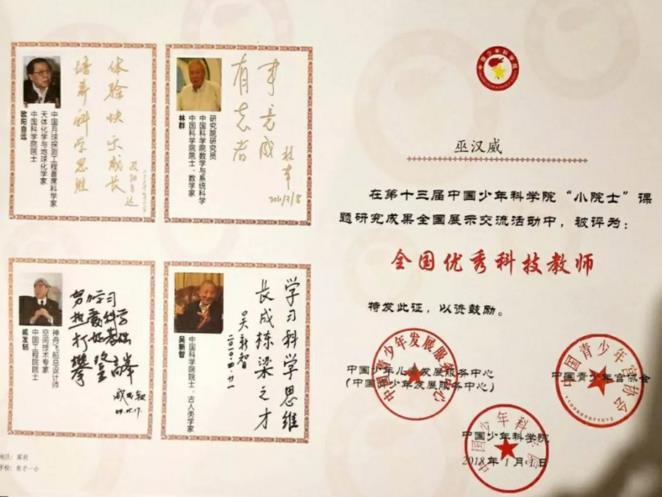 体验快乐成长
培养科学思维
中国月球探测工程首席科学家
天体化学与地球化学家
中国科学院院士
欧阳自远
有志者
事竟成
林群
研究院研究员
中国科学院数学与系统科学
中国科学院院士、数学家
林群
努力学习
热爱科学
打好基础
攀登高峰
戚发轫
神舟飞船总设计师
空间技术专家
中国工程院院士
戚发轫
学习科学思维
长成栋梁之才
吴新智
中国科学院院士、古人类学家
吴新智
中国少年科学院
巫汉威
在第十三届中国少年科学院“小院士”课
题研究成果全国展示交流活动中，被评为：
全国优秀科技教师
特发此证，以资鼓励。
中国青少年宫协会
中国少年科学院